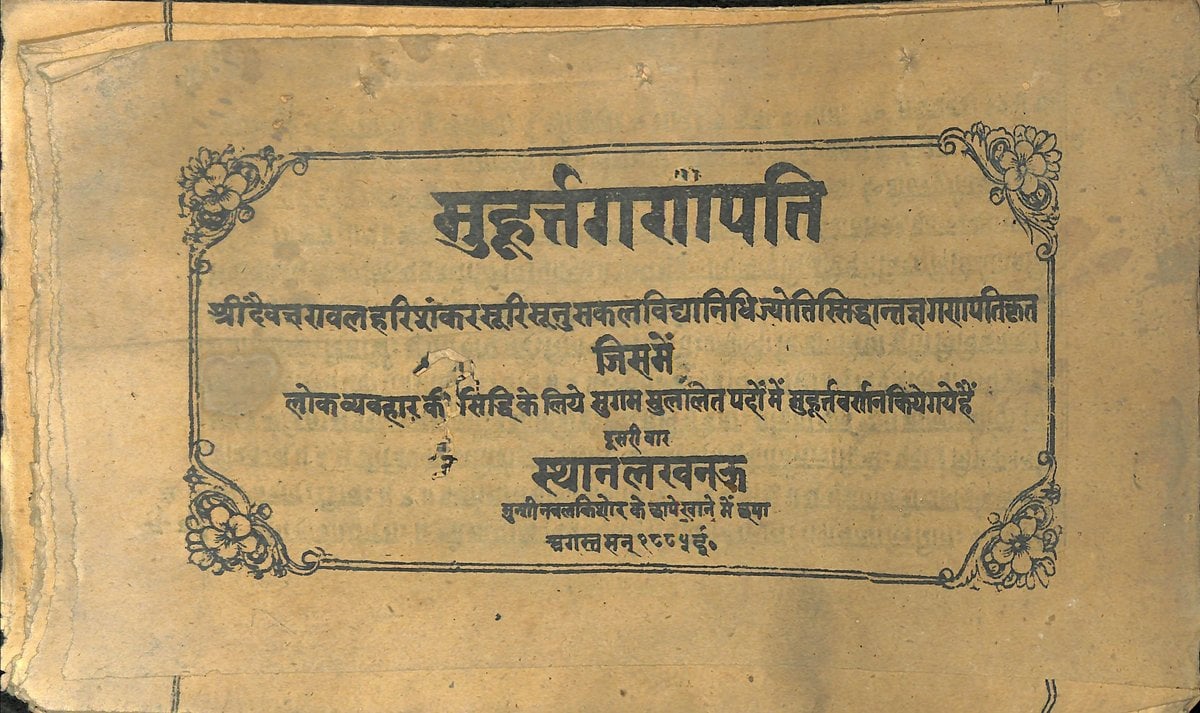 मुहूर्त्तगणपति
श्रीदैवज्ञरावलहरिशंकरसूरिसूनुसकलविद्यानिधिज्योतिस्सिद्धान्तज्ञगणपतिकृत
जिसमें
लोकव्यवहार की सिद्धि के लिये सुगम सुललित पदों में मुहूर्त वर्णन किये गये हैं
दूसरी बार
स्थान लखनऊ
मुन्शी नवलकिशोर के छापेखाने में छपा
अगस्त सन् १८८५ ई०